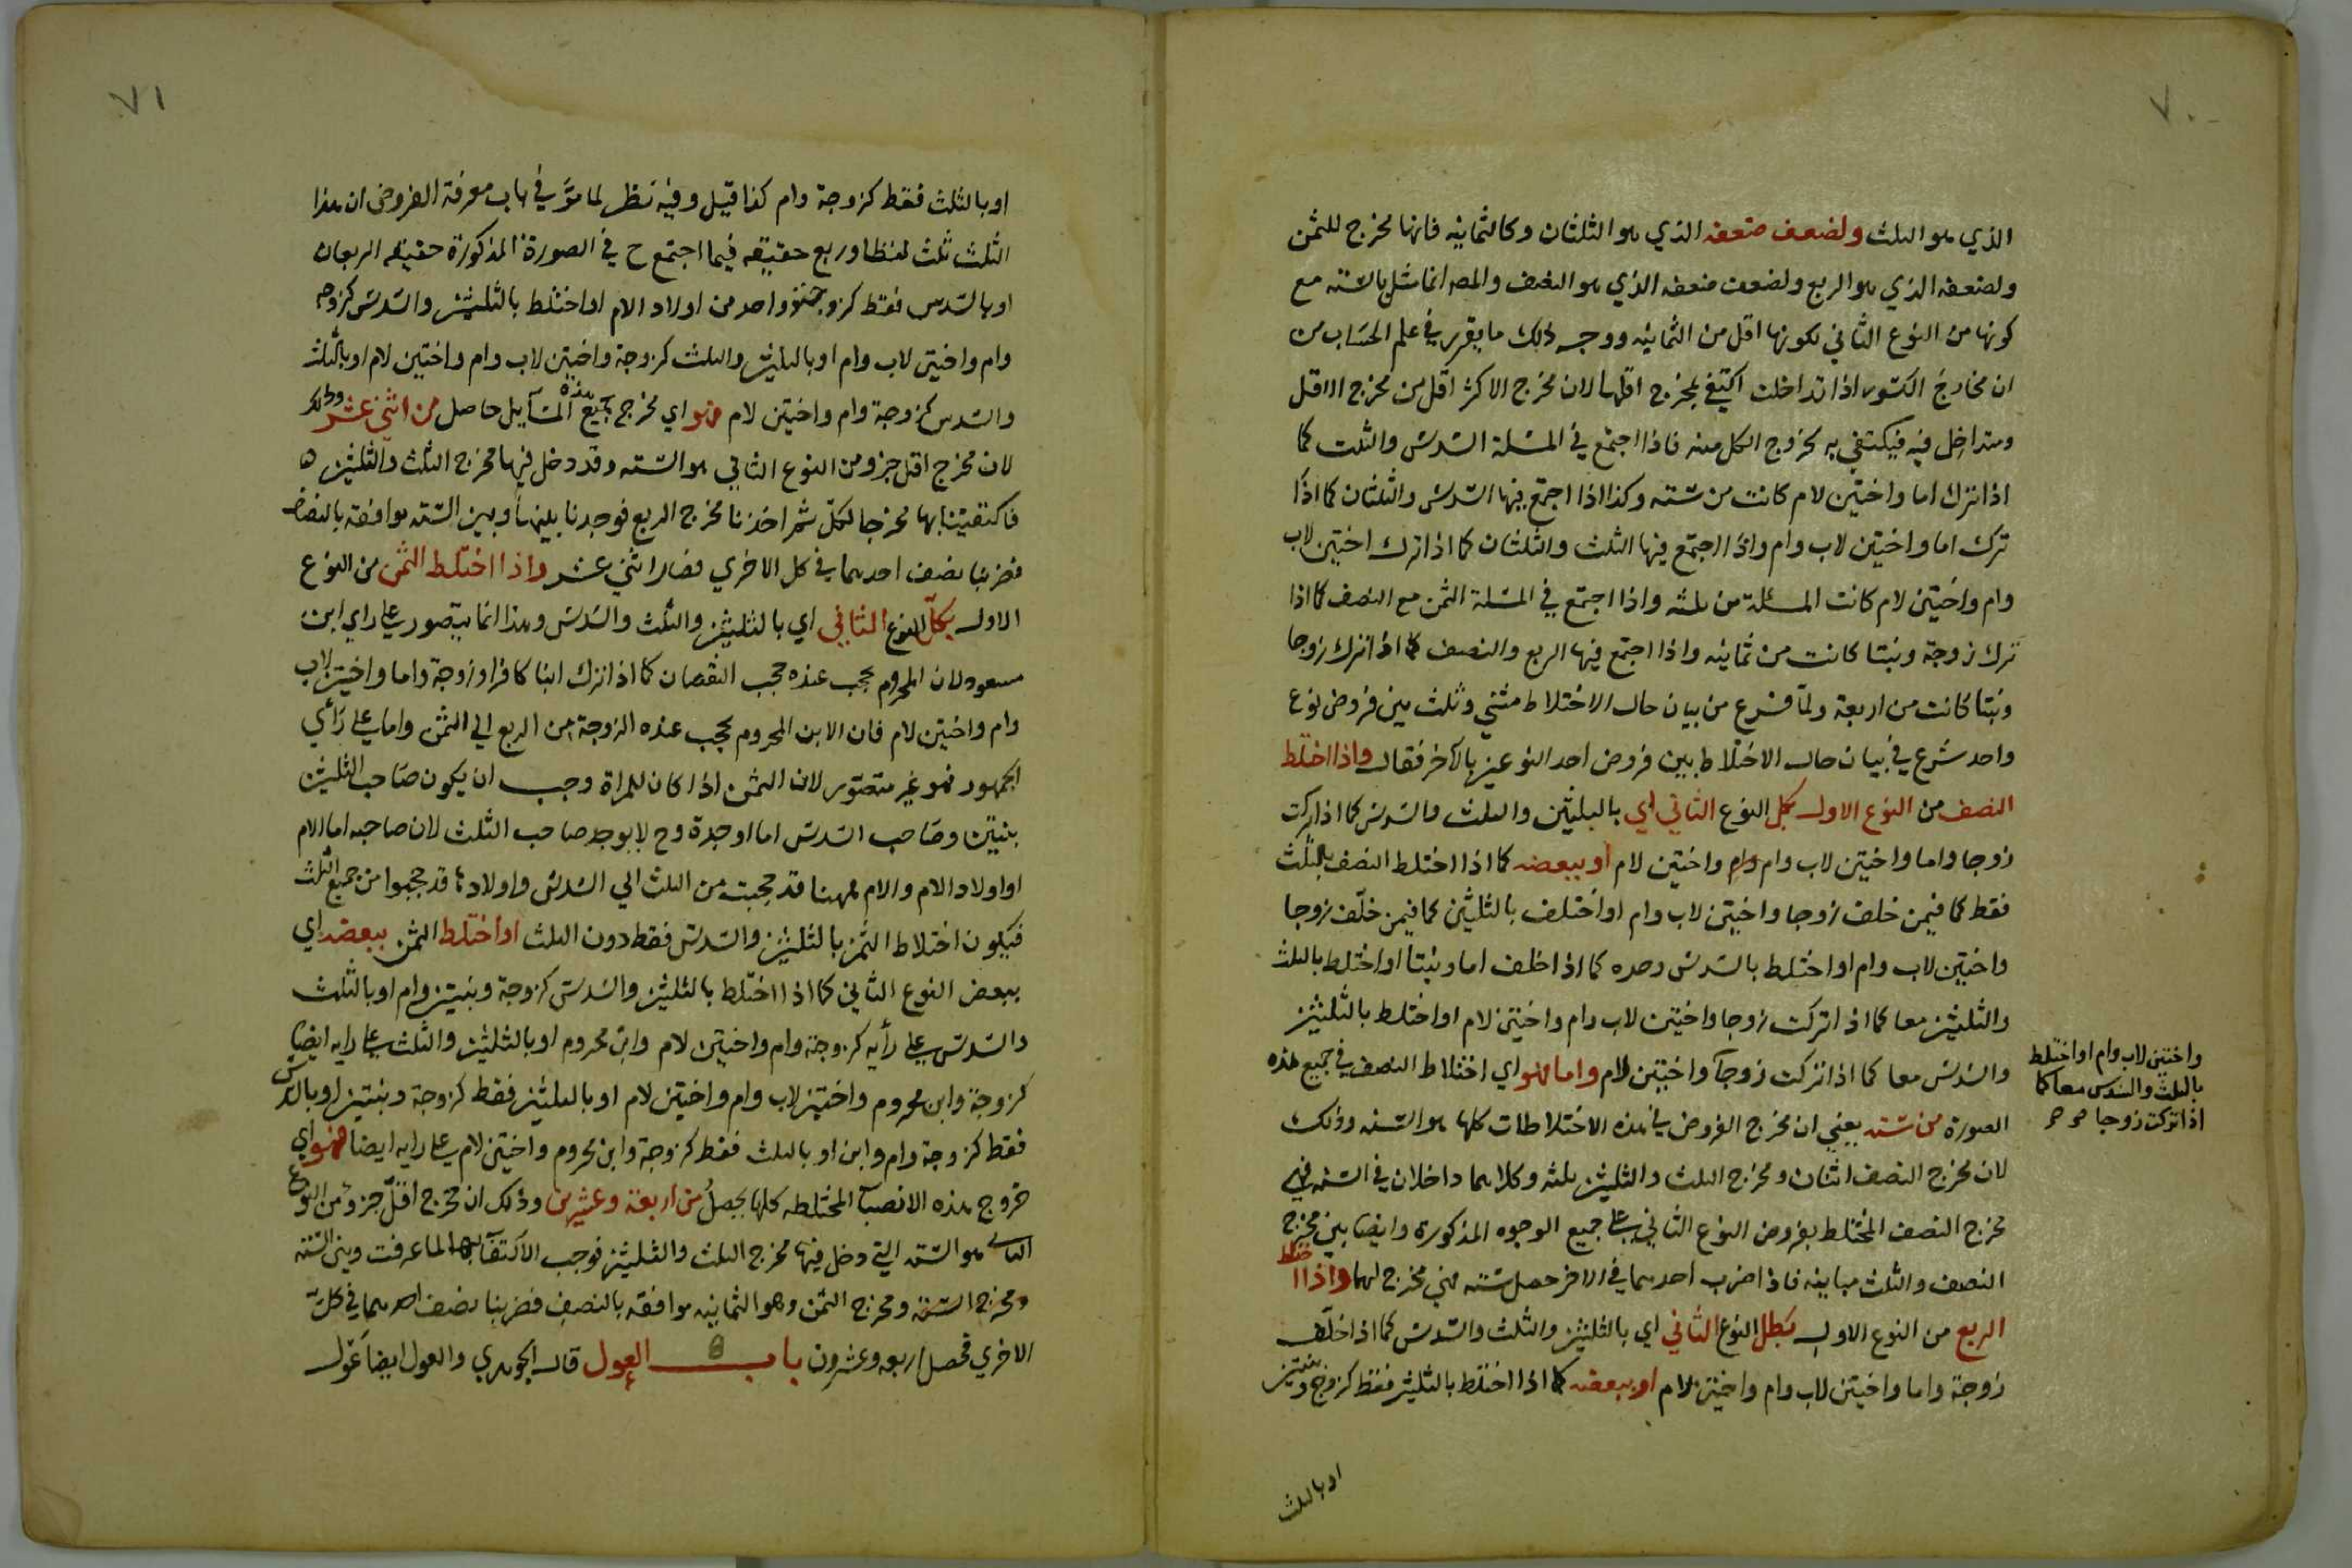 ٧٠
الذي هو الثلث ولضعف ضعفه الذي هو الثلثان وكالثمانيه فانها مخرج للثمن
ولضعفه الذي هو الربع ولضعف ضعفه الذي هو النصف والمص انما مثل بالسته مع
كونها من النوع الثاني لكونها اقل من الثمانيه ووجه ذلك ما يقرر في علم الحساب من
ان مخارج الكسور اذا تداخلت اكتفي بمخرج اقلها لان مخرج الاكثر اقل من مخرج الاقل
ومتداخل فيه فيكتفي به لخروج الكل منه فاذا اجتمع في المسئلة السدس والثلث كما
اذا ترك اما واختين لام كانت من سته وكذا اذا اجتمع فيها السدس والثلثان كما اذا
ترك اما واختين لاب وام واذا اجتمع فيها الثلث والثلثان كما اذا ترك اختين لاب
وام واختين لام كانت المسئلة من ثلثه واذا اجتمع في المسئلة الثمن مع النصف كما اذا
ترك زوجة وبنتا كانت من ثمانيه واذا اجتمع فيها الربع والنصف كما اذا ترك زوجا
وبنتا كانت من اربعة ولما فرغ من بيان حال الاختلاط مثني وثلث بين فروض نوع
واحد شرع في بيان حال الاختلاط بين فروض احد النوعين بالاخر فقال واذا اختلط
النصف من النوع الاول بكل النوع الثاني اي بالثلثين والثلث والسدس كما اذا تركت
زوجا واما واختين لاب وام واختين لام او ببعضه كما اذا اختلط النصف بالثلث
فقط كما فيمن خلف زوجا واختين لاب وام او اختلف بالثلثين كما فيمن خلف زوجا
واختين لاب وام او اختلط بالسدس وحده كما اذا خلف اما وبنتا او اختلط بالثلث
والثلثين معا كما اذا تركت زوجا واختين لاب وام واختين لام او اختلط بالثلثين
والسدس معا كما اذا تركت زوجا واختين لام واما فهو اي اختلاط النصف في جميع هذه
الصورة من سته يعني ان مخرج الفروض في هذه الاختلاطات كلها هو السته وذلك
لان مخرج النصف اثنان ومخرج الثلث والثلثين ثلثه وكلاهما داخلان في السته فهي
مخرج النصف المختلط بفروض النوع الثاني على جميع الوجوه المذكورة وايضا بين مخرج
النصف والثلث مباينه فاذا ضرب احدهما في الاخر حصل سته فهي مخرج لهما واذا اختلط
الربع من النوع الاول بكل النوع الثاني اي بالثلثين والثلث والسدس كما اذا خلف
زوجة واما واختين لاب وام واختين لام او ببعضه كما اذا اختلط بالثلثين فقط كزوج وبنتين
او بالثلث
واختين لاب وام او اختلط
بالثلث والسدس معا كما
اذا تركت زوجا
٧١
او بالثلث فقط كزوجة وام كذا قيل وفيه نظر لما مر في باب معرفة الفروض ان هذا
الثلث ثلث لفظا وربع حقيقه فيما اجتمع ح في الصورة المذكورة حقيقه الربعان
او بالسدس فقط كزوجة وواحد من اولاد الام او اختلط بالثلثين والسدس كزوجه
وام واختين لاب وام او بالثلثين والثلث كزوجة واختين لاب وام واختين لام او بالثلث
والسدس كزوجة وام واختين لام فهو اي مخرج جميع هذه المسايل حاصل من اثني عشر وذلك
لان مخرج اقل جزو من النوع الثاني هو السته وقد دخل فيها مخرج الثلث والثلثين
فاكتفينا بها مخرجا للكل ثم اخذنا مخرج الربع فوجدنا بينها وبين السته موافقه بالنصف
فضربنا نصف احدهما في كل الاخري فصار اثني عشر واذا اختلط الثمن من النوع
الاول بكل النوع الثاني اي بالثلثين والثلث والسدس وهذا انما يتصور على راي ابن
مسعود لان المحروم يحجب عنده حجب النقصان كما اذا ترك ابنا كافرا وزوجة واما واختين لاب
وام واختين لام فان الابن المحروم يحجب عنده الزوجة من الربع الي الثمن واما على رأي
الجمهور فهو غير متصور لان الثمن اذا كان للمراة وجب ان يكون صاحب الثلثين
بنتين وصاحب السدس اما او جدة وح لا يوجد صاحب الثلث لان صاحبه اما الام
او اولاد الام والام ههنا قد حجبت من الثلث الي السدس واولادها قد حجبوا من جميع الثلث
فيكون اختلاط الثمن بالثلثين والسدس فقط دون الثلث او اختلط الثمن ببعضه اي
ببعض النوع الثاني كما اذا اختلط بالثلثين والسدس كزوجة وبنتين وام او بالثلث
والسدس على رأيه كزوجة وام واختين لام وابن محروم او بالثلثين والثلث على رايه ايضا
كزوجة وابن محروم واختين لاب وام واختين لام او بالثلثين فقط كزوجة وبنتين او بالسدس
فقط كزوجة وام وابن او بالثلث فقط كزوجة وابن محروم واختين لام على رايه ايضا فهو اي
خروج هذه الانصبآ المختلطه كلها يحصل من اربعة وعشرين وذلك ان مخرج اقل جزو من النوع
الثاني هو السته التي دخل فيها مخرج الثلث والثلثين فوجب الاكتفآ بها لما عرفت وبين السته
ومخرج الثمن وهو الثمانيه موافقه بالنصف فضربنا نصف احدهما في كل
الاخري فحصل اربعه وعشرون باب العول قال الجوهري والعول ايضا عول